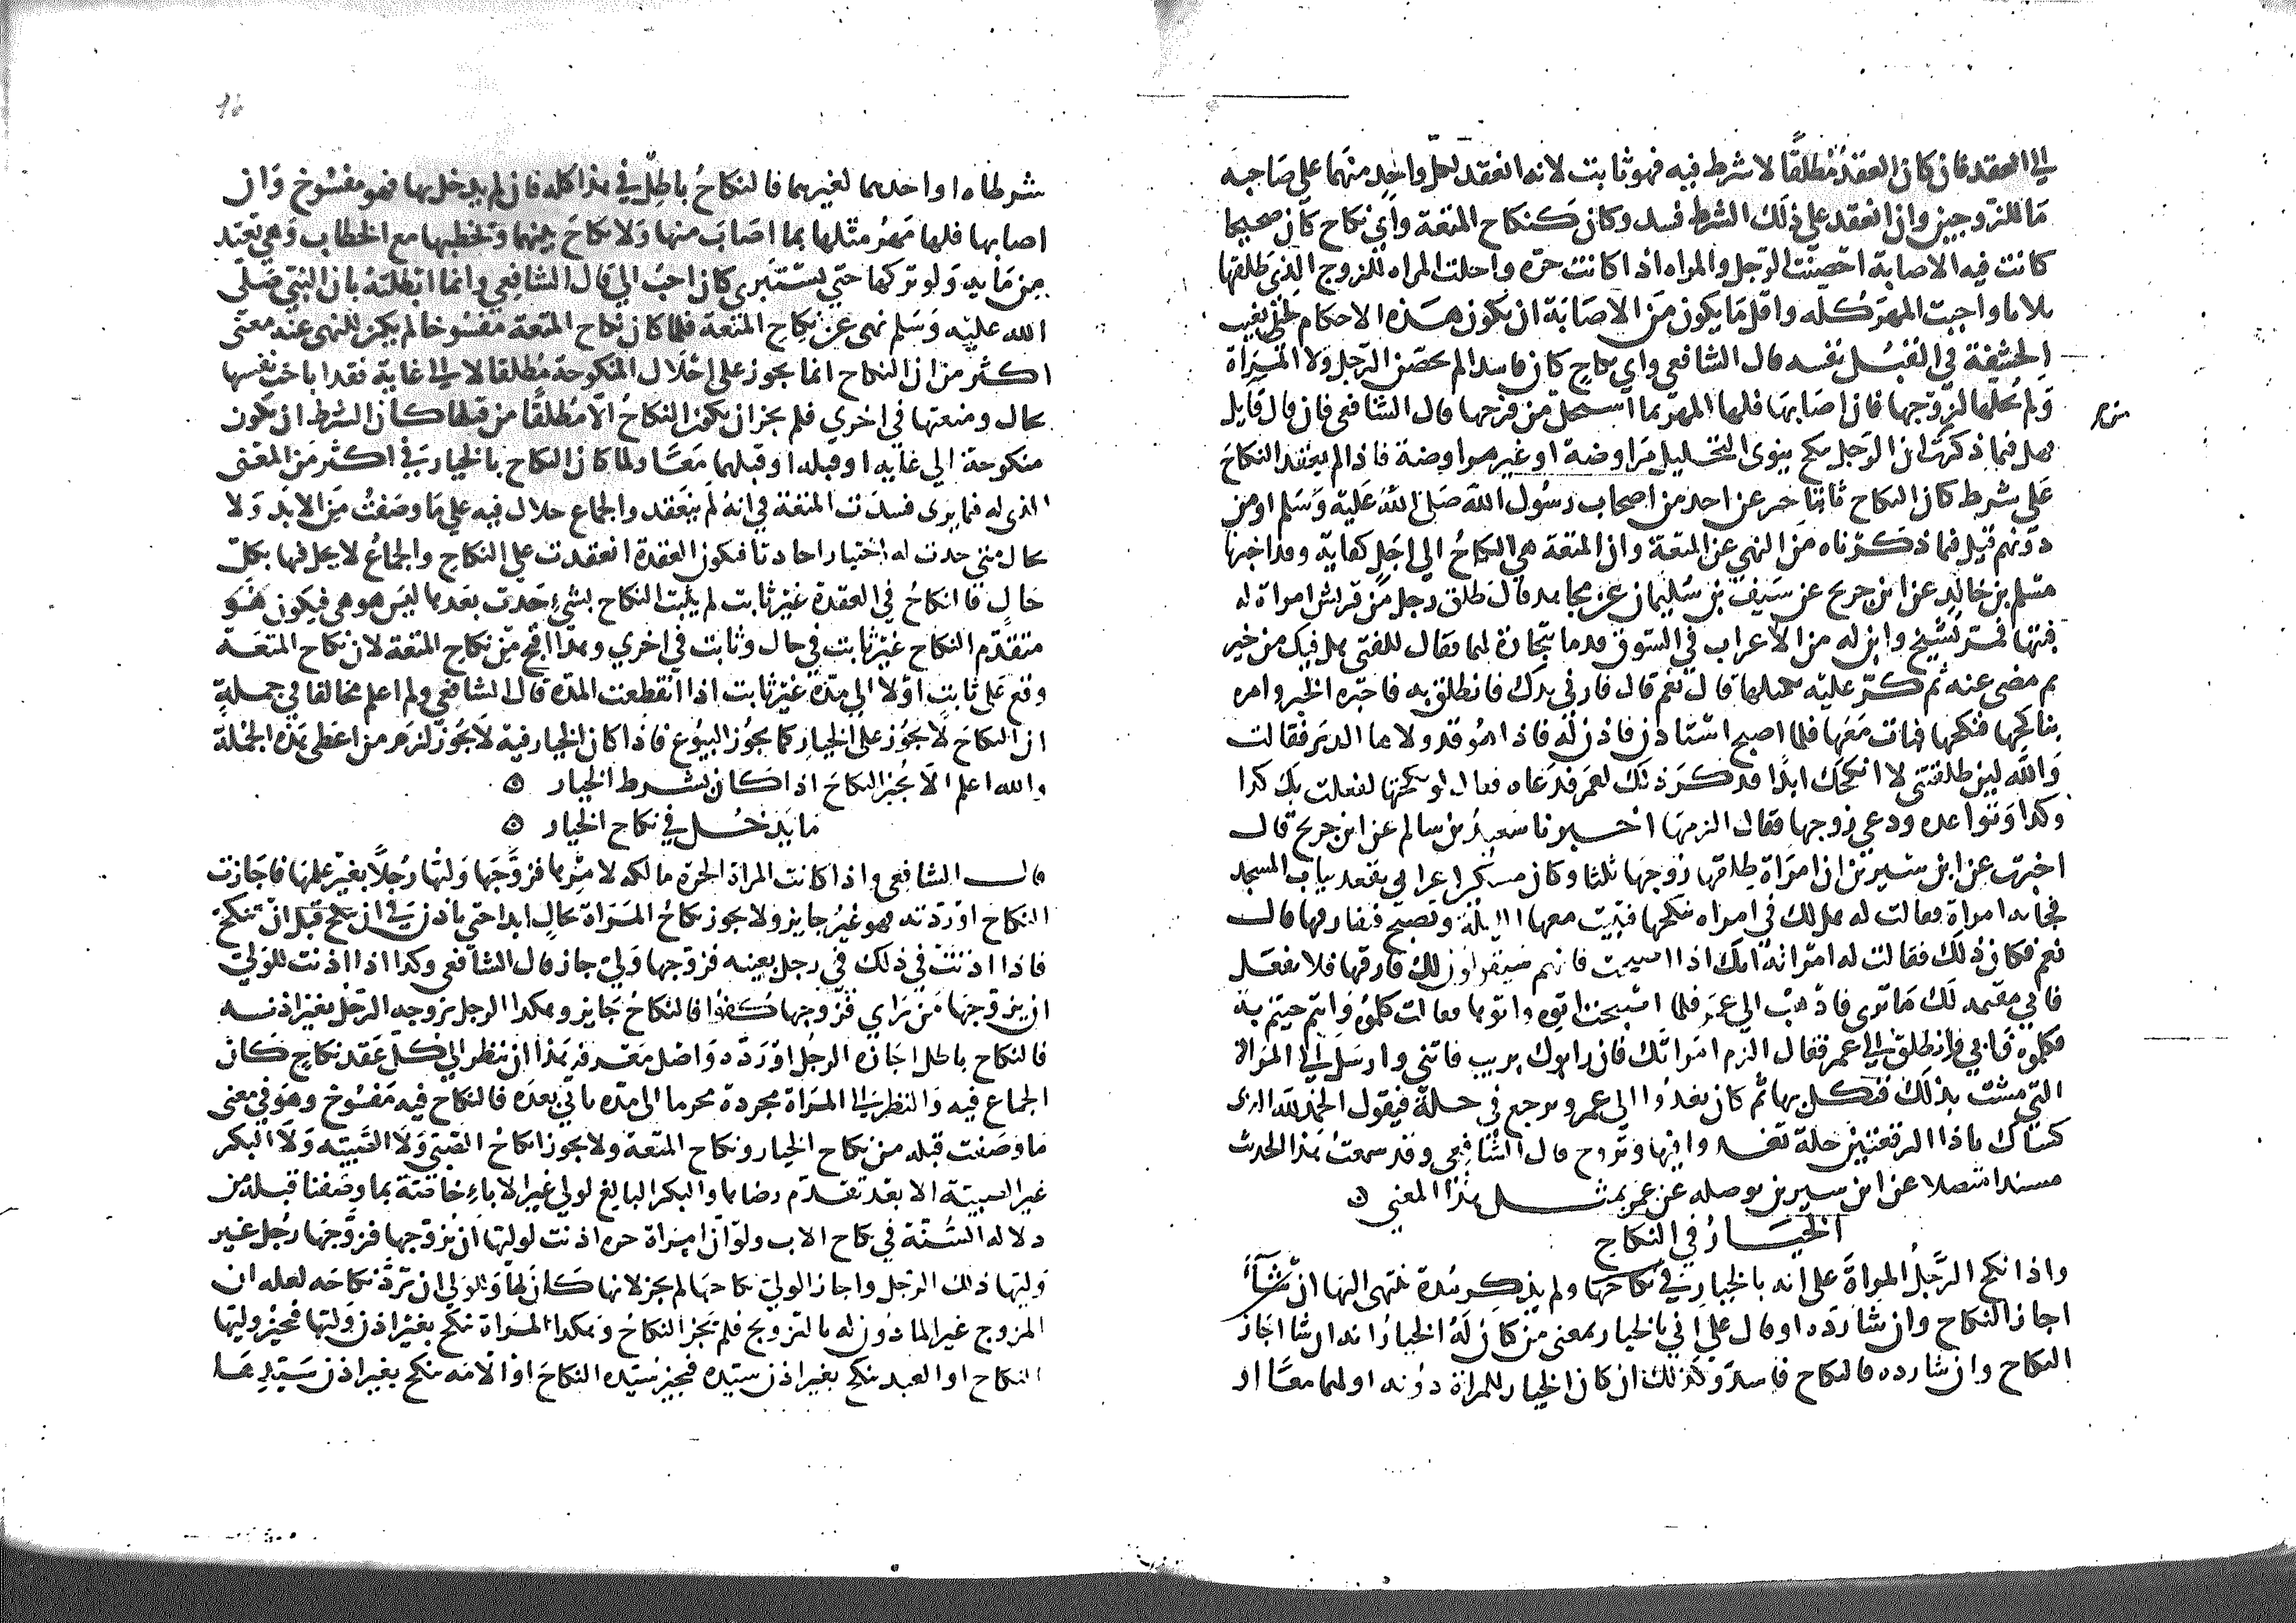 الي العقد فان كان العقد مطلقا لا شرط فيه فهو ثابت لانه انعقد لكل واحد منهما علي صاحبه
ما للزوجين وان انعقد علي ذلك الشرط فسد وكان كنكاح المتعة واي نكاح كان صحيحا
كانت فيه الاصابة احصنت الرجل والمراه اذا كانت حره واحلت المراه للزوج الذي طلقها
ثلاثا واجبت المهر كله واقل ما يكون من الاصابة ان يكون هذه الاحكام حتي تغيب
الحشفة في القبل نفسه قال الشافعي واي نكاح كان فاسدا لم يحصن الرجل ولا المراة
ولم يحلها لزوجها فان اصابها فلها المهر بما استحل من فرجها قال الشافعي فان قال قايل
فهل فيما ذكرت ان الرجل ينكح ينوي التحليل مراوضة او غير مراوضة فاذا لم يعقد النكاح
علي شرط كان النكاح ثابتا خبر عن احد من اصحاب رسول الله صلي الله عليه وسلم او من
دونهم قيل فيما ذكرناه من النهي عن المتعة وان المتعة هي النكاح الي اجل كفاية وقد اخبرنا
مسلم بن خالد عن ابن جريج عن سيف بن سليمان عن مجاهد قال طلق رجل من قريش امراة له
فبتها فمر بشيخ وابن له من الاعراب في السوق قدما بتجارة لهما فقال للفتي هل فيك من خير
ثم مضي عنه ثم كر عليه كمثلها قال نعم قال فارني يدك فانطلق به فاخبره الخبر وامره
بنكاحها فنكحها فبات معها فلما اصبح استاذن فاذن له فاذا هو قد ولاها الدبر فقالت
والله لين طلقتني لا انكحك ابدا فذكر ذلك لعمر فدعاه فقال لو نكحتها لفعلت بك كذا
وكذا وتواعده ودعي زوجها فقال الزمها اخبرنا سعيد بن سالم عن ابن جريج قال
اخبرت عن ابن سيرين ان امراة طلقها زوجها ثلثا وكان مسكين اعرابي يقعد بباب المسجد
فجاته امراة فقالت له هل لك في امراه تنكحها فتبيت معها الليلة وتصبح فتفارقها قال
نعم فكان ذلك فقالت له امراته انك اذا اصبحت فانهم سيقولون لك فارقها فلا تفعل
فاني مقيمة لك ما تري فاذهب الي عمر فلما اصبحت اتوه واتوها فقالت كلموه وانتم جيتم به
فكلموه فابي وانطلق الي عمر فقال الزم امراتك فان رابوك بريب فاتني وارسل الي المراة
التي مشت بذلك فنكل بها ثم كان يغدوا الي عمر ويروح في حلة فيقول الحمد لله الذي
كساك يا ذا الرقعتين حلة تغدوا فيها وتروح قال الشافعي وقد سمعت هذا الحديث
مسندا متصلا عن ابن سيرين يوصله عن عمر بمثل هذا المعني
الخيار في النكاح
واذا نكح الرجل المراة علي انه بالخيار في نكاحها ولم يذكر مدة ينتهي اليها ان شاء
اجاز النكاح وان شا رده او قال علي اني بالخيار بمعني من كان له الخيار انه ان شا اجاز
النكاح وان شا رده فالنكاح فاسد وكذلك ان كان الخيار للمراة دونه او لهما معا او
شرطاه او احدهما لغيرهما فالنكاح باطل في هذا كله فان لم يدخل بها فهو مفسوخ وان
اصابها فلها مهر مثلها بما اصاب منها ولا نكاح بينهما ويخطبها مع الخطاب وهي تعتد
من مايه ولو تركها حتي تستبري كان احب الي قال الشافعي وانما ابطلته بان النبي صلي
الله عليه وسلم نهي عن نكاح المتعة فلما كان نكاح المتعة مفسوخا لم يكن للنهي عنه معني
اكثر من ان النكاح انما يجوز علي احلال المنكوحة مطلقا لا الي غاية فقد اباحت نفسها
بحال ومنعتها في اخري فلم يجز ان يكون النكاح الا مطلقا من قبلها كان الشرط ان تكون
منكوحة الي غايه او قبله او قبلهما معا ولما كان النكاح بالخيار في اكثر من المعني
الذي له فيما يري فسدت المتعة في انه لم ينعقد والجماع حلال فيه علي ما وصفت من الابد ولا
بحال متي حدث له اختيار احادثا فيكون العقدة انعقدت علي النكاح والجماع لا يحل فيها بكل
حال فالنكاح في العقدة غير ثابت لم يثبت النكاح بشيء حدث بعدها ليس هو هي فيكون هو
متقدم النكاح غير ثابت في حال وثابت في اخري وهذا اقبح من نكاح المتعة لان نكاح المتعة
وقع علي ثابت اولا الي مدة غير ثابت اذا انقطعت المدة قال الشافعي ولم اعلم مخالفا في جملة
ان النكاح لا يجوز علي الخيار كما يجوز البيوع فاذا كان الخيار فيه لا يجوز لزم من اعطي هذه الجملة
والله اعلم الا يجيز النكاح اذا كان بشرط الخيار
ما يدخل في نكاح الخيار
قال الشافعي واذا كانت المراة الحرة مالكه لامرها فزوجها وليها رجلا بغير علمها فاجازت
النكاح او ردته فهو غير جايز ولا يجوز نكاح المراة بحال ابدا حتي ياذن في ان تنكح قبل ان تنكح
فاذا اذنت في ذلك في رجل بعينه فزوجها ولي جاز قال الشافعي وكذا اذا اذنت للولي
ان يزوجها من راي فزوجها كفوا فالنكاح جايز وهكذا الرجل يزوجه الرجل بغير اذنه
فالنكاح باطل اجازه الرجل او رده واصل معرفة هذا ان تنظر الي كل عقد نكاح كان
الجماع فيه والنظر الي المراة مجردة محرما الي مده ياتي بعده فالنكاح فيه مفسوخ وهو في معني
ما وصفت قبله من نكاح الخيار ونكاح المتعة ولا يجوز انكاح الصبي ولا الصبيه ولا البكر
غير الصبية الا بعد تقدم رضاها والبكر البالغ لولي غير الاباء خاصة بما وصفنا قبله من
دلاله السنة في نكاح الاب ولو ان امراة حره اذنت لوليها ان يزوجها فزوجها رجل غير
وليها ذلك الرجل واجاز الولي نكاحها لم يجز لانها كان لها وللولي ان ترد نكاحه لعله ان
المزوج غير الماذون له بالتزويج فلم يجز النكاح وهكذا المراة تنكح بغير اذن وليها فيجيز وليها
النكاح او العبد ينكح بغير اذن سيده فيجيز سيده النكاح او الامه تنكح بغير اذن سيدها